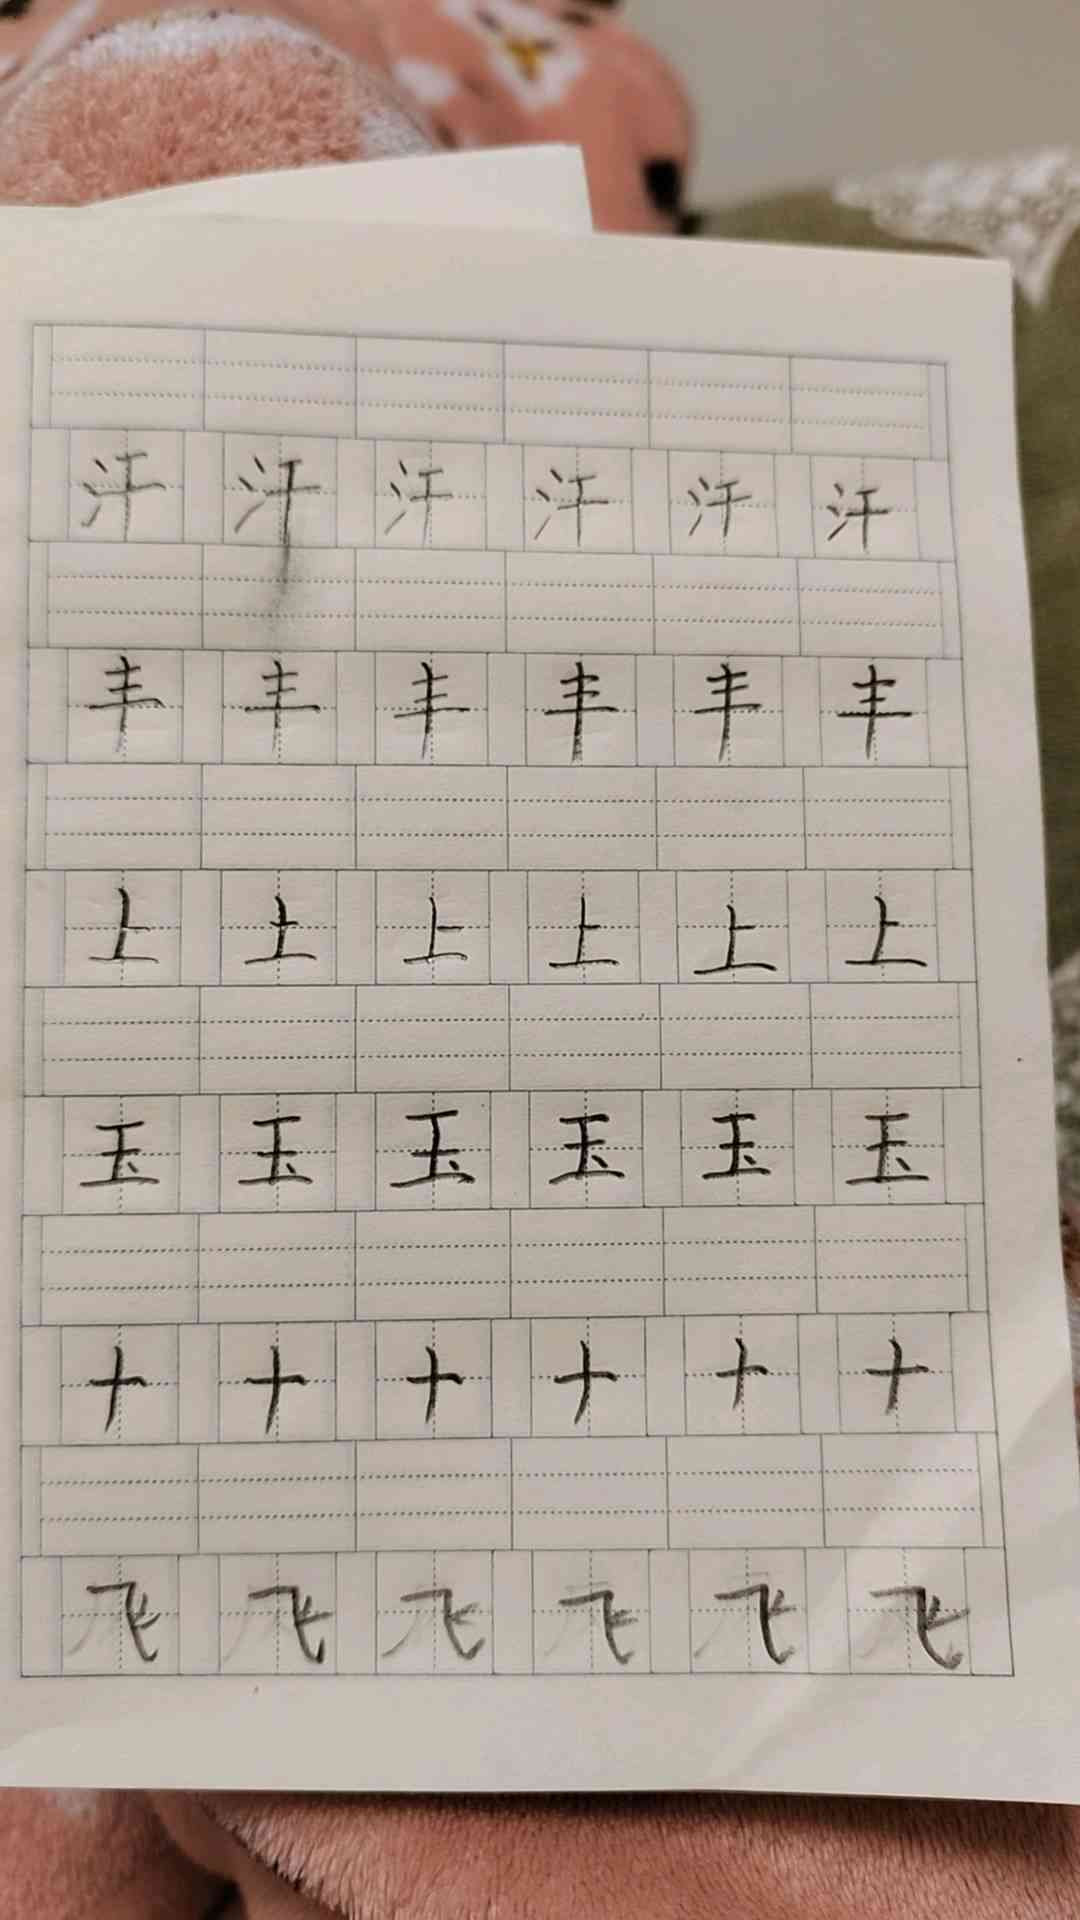 汗 汗 汗 汗 汗 汗
丰 丰 丰 丰 丰 丰
上 上 上 上 上 上
玉 玉 玉 玉 玉 玉
十 十 十 十 十 十
飞 飞 飞 飞 飞 飞